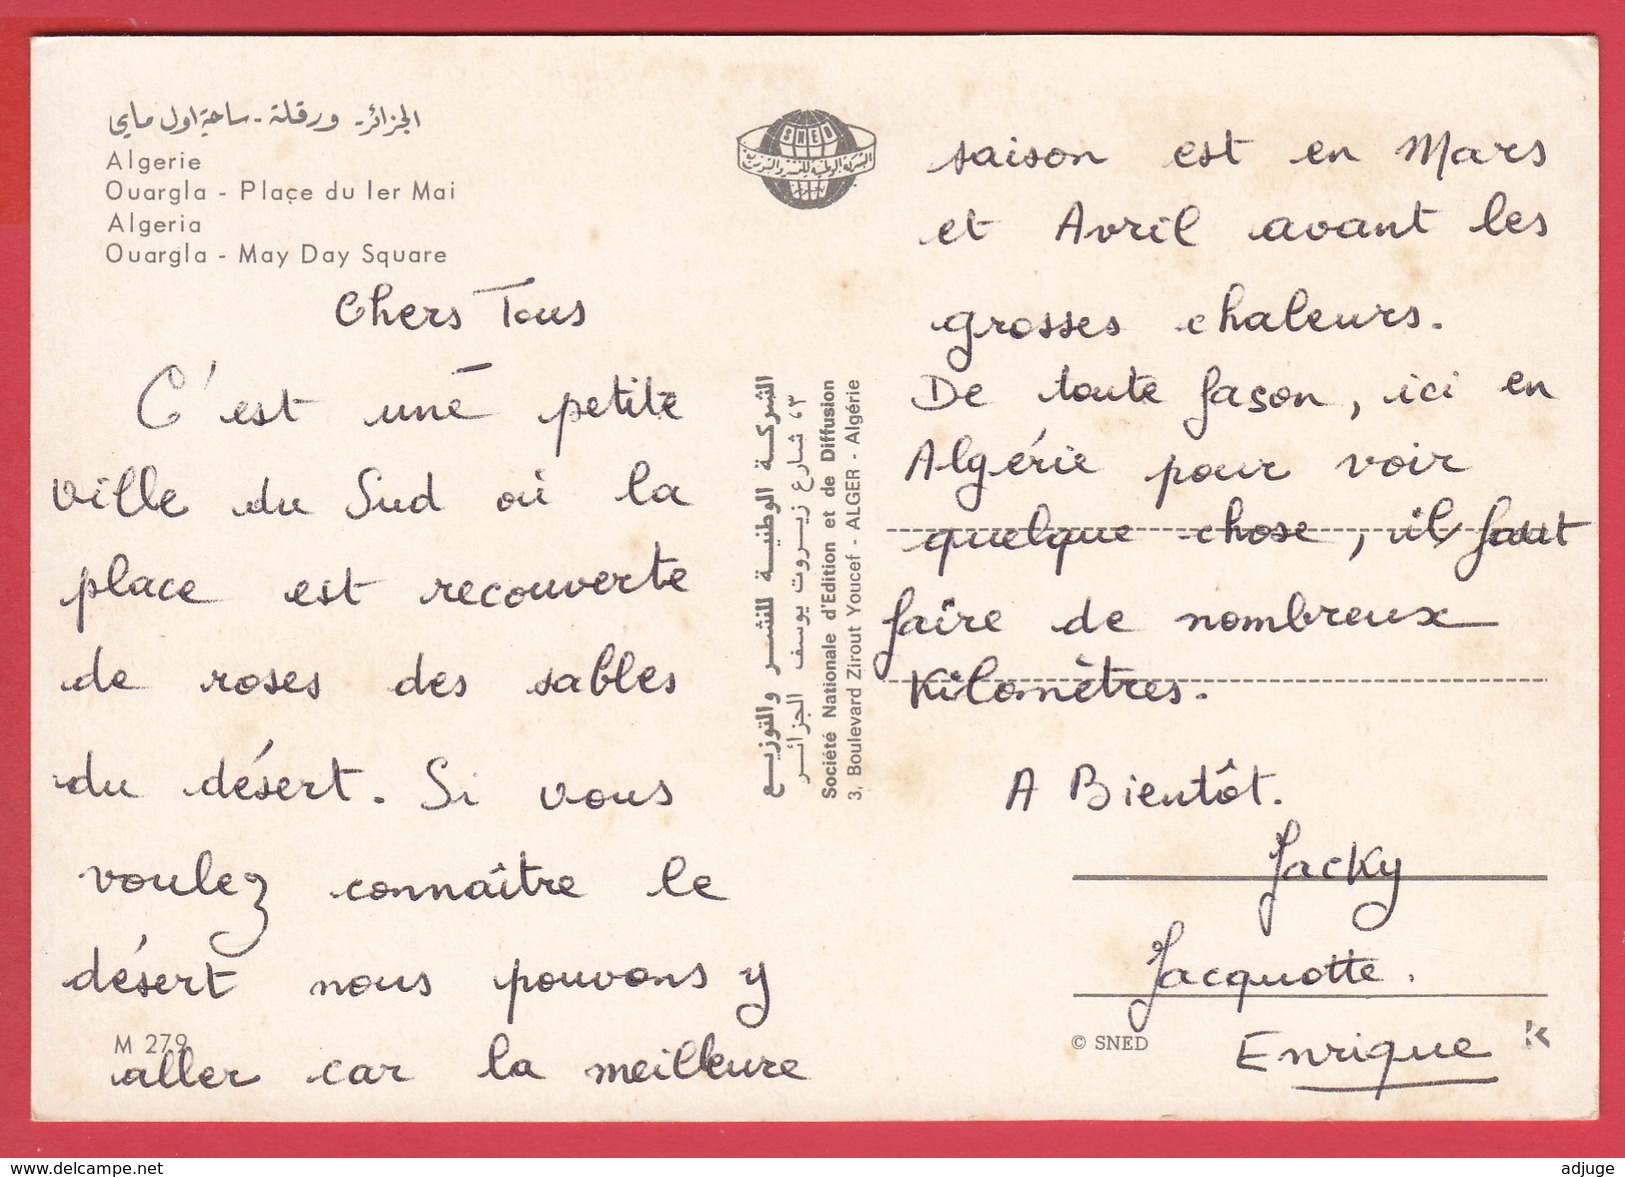 الجزائر - ورقلة - ساحة اول ماي
Algerie
Ouargla - Plaçe du Ier Mai
Algeria
Ouargla - May Day Square
Chers Tous
C'est une petite
ville du Sud où la
place est recouverte
de roses des sables
du désert. Si vous
voulez connaître le
désert nous pouvons y
M 279
aller car la meilleure
SNED
الشركة الوطنية للنشر والتوزيع
الشركة الوطنية للنشر والتوزيع
٣، شارع زيروت يوسف الجزائر
Société Nationale d'Edition et de Diffusion
3, Boulevard Zirout Youcef - ALGER - Algérie
saison est en Mars
et Avril avant les
grosses chaleurs.
De toute façon, ici en
Algérie pour voir
quelque chose, il faut
faire de nombreux
Kilomètres.
A Bientôt.
Jacky
Jacquotte.
© SNED
Enrique
www.delcampe.net
adjuge